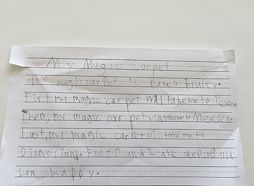 My Magic Carpet
My magic carpet is named Fluffy.
First my magic carpet will take me to
Then, my magic carpet will take me to Mexico.
Last, my magic carpet will take me to
Disneyland. First and
I am happy.